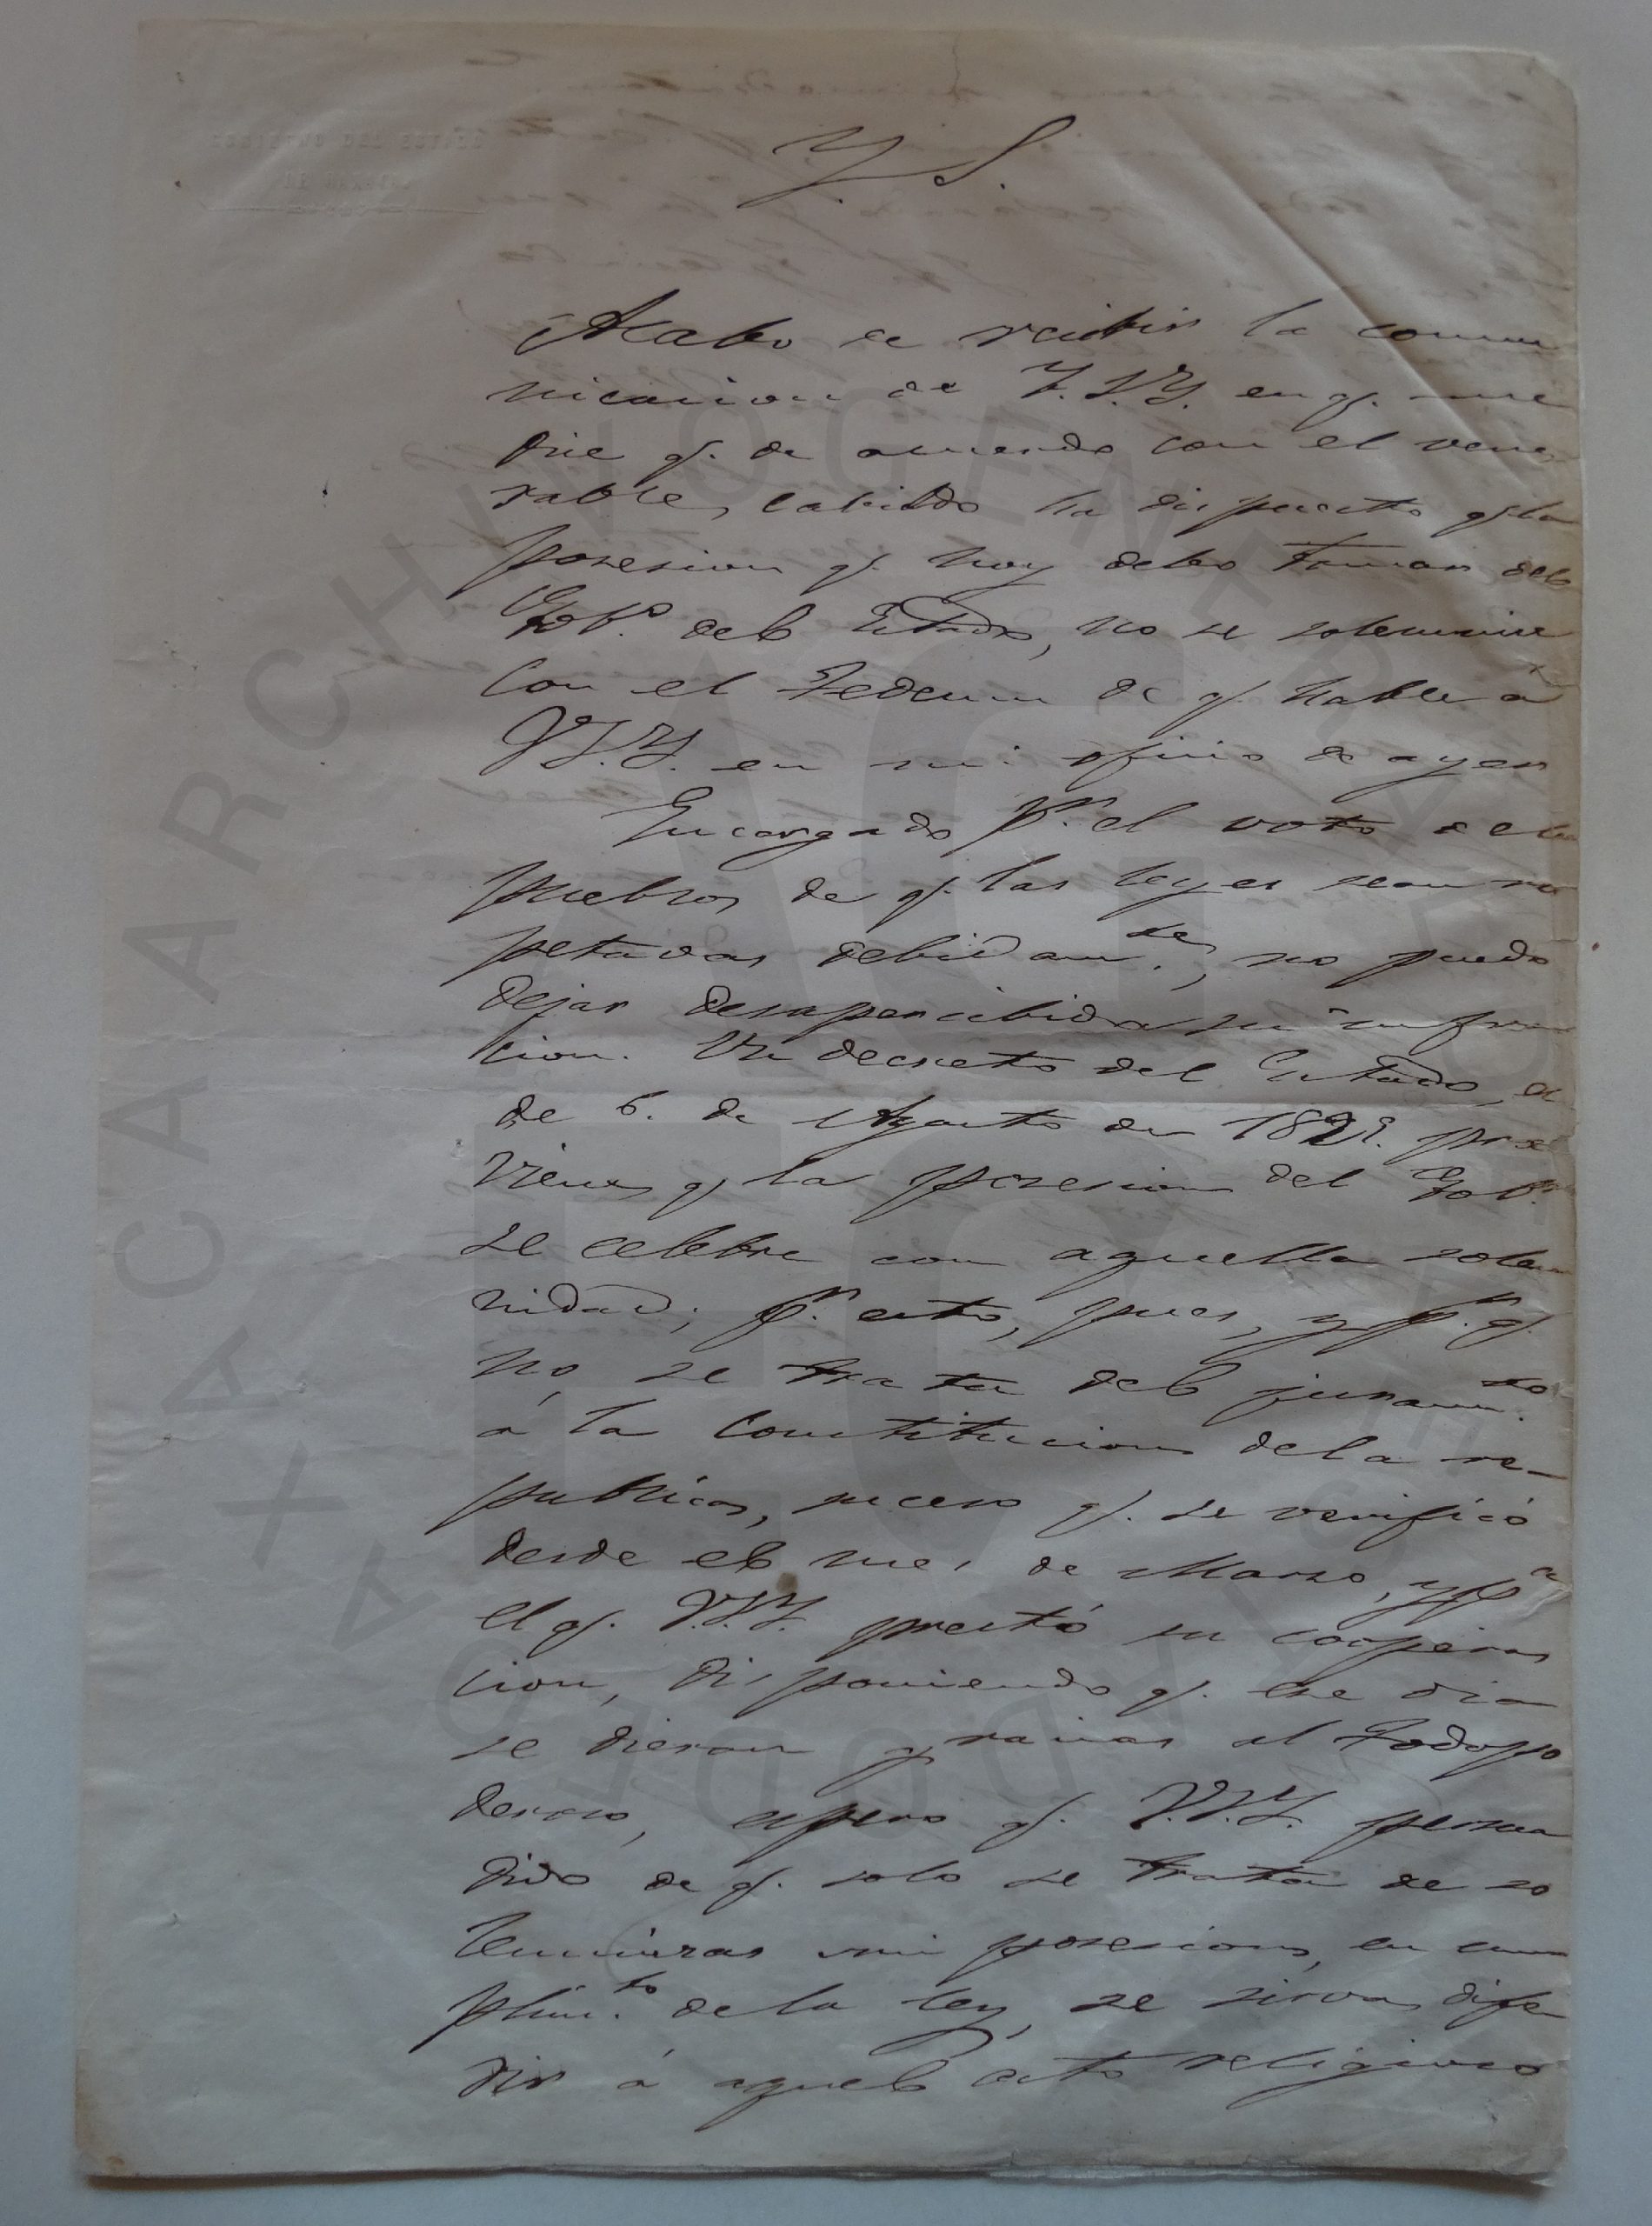 Y. S.
Acabo de recibir la comu
nicacion de V.S.Y. en q. me
dice q. de acuerdo con el vene
rable cabildo ha dispuesto q. la
posesion q. hoy debo tomar del
Gob.º del Estado, no se solemnice
con el Tedeum de q. hablé á
V.S.Y. en mi oficio de ayer
Encargado p.r el voto de los
pueblos de q. las leyes sean res
petadas debidam.te, no puedo
dejar desapercibida su infrac
cion. Un decreto del Estado, el
de 6. de Agosto de pre
viene q. la posesion del Gob.r
se celebre con aquella solem
nidad; p.r esto, pues, y p.r q.
no se trata del juram.to
á la Constitucion de la re-
publica, suceso q. se verificó
desde el mes de Marzo, y p.a
el q. V.S.Y. prestó su coopera
cion, disponiendo q. ese dia
se dieran gracias al Todopo
deroso, espero q. V.S.Y. persua
dido de q. solo se trata de so
lemnizar mi posesion, en cum
plim.to de la ley, se sirva dife
rir á aquel acto religioso
ARCHIVO GENERAL DEL ESTADO DE OAXACA